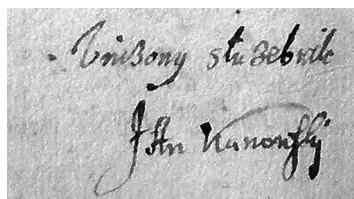 Vniżony służebnik
Jan Kunowskj